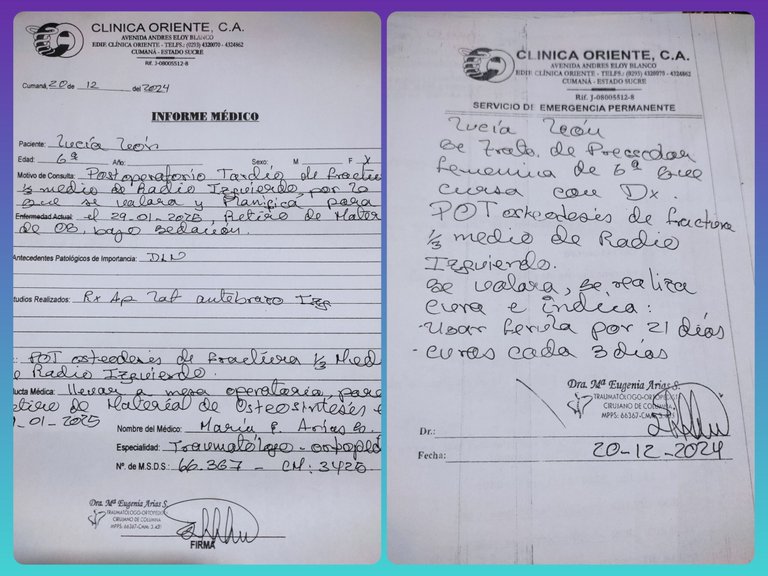 CLINICA ORIENTE, C.A.
AVENIDA ANDRES ELOY BLANCO
EDIF. CLÍNICA ORIENTE - TELFS.: (0293) 4320070 - 4324862
CUMANÁ - ESTADO SUCRE
Rif. J-08005512-8
Cumaná, 20 de 12 del 2024
INFORME MÉDICO
Paciente: Lucía León
Edad: 6ª Año: Sexo: M F X
Motivo de Consulta: Postoperatorio Tardío de Fractu
1/3 medio de Radio Izquierdo, por lo
que se valara y Planifica para
Enfermedad Actual: el 29-01-2025, Retiro de Mater
de OB, bajo sedación.
Antecedentes Patológicos de Importancia: DLN
tudios Realizados: Rx Ap Lat antebrazo Izq
: POT osteodesis de fractura 1/3 Med
e Radio Izquierdo.
ucta Médica: llevar a mesa operatoria, para
etiro de Material de Osteosíntesis e
-01-2025
Nombre del Médico: María E. Arias S.
Especialidad: Traumatólogo - ortopéd
Nº. de M.S.D.S.: 66.367 - CM: 3425
Dra. Mª Eugenia Arias S.
TRAUMATÓLOGO-ORTOPEDI
CIRUJANO DE COLUMNA
MPPS: 66367-CM: 3.425
FIRMA
CLINICA ORIENTE, C.A.
AVENIDA ANDRES ELOY BLANCO
EDIF. CLÍNICA ORIENTE - TELFS.: (0293) 4320070 - 4324862
CUMANÁ - ESTADO SUCRE
Rif. J-08005512-8
SERVICIO DE EMERGENCIA PERMANENTE
Lucía León
Se Trata de Preescolar
femenina de 6ª que
cursa con Dx.
POT osteodesis de fractura
1/3 medio de Radio
Izquierdo.
Se valara, se realiza
cura e indica:
- Usar ferula por 21 días
- curas cada 3 días
Dra. Mª Eugenia Arias S.
TRAUMATÓLOGO-ORTOPEDI
CIRUJANO DE COLUMNA
MPPS: 66367-CM:
Dr.:
Fecha: 20-12-2024